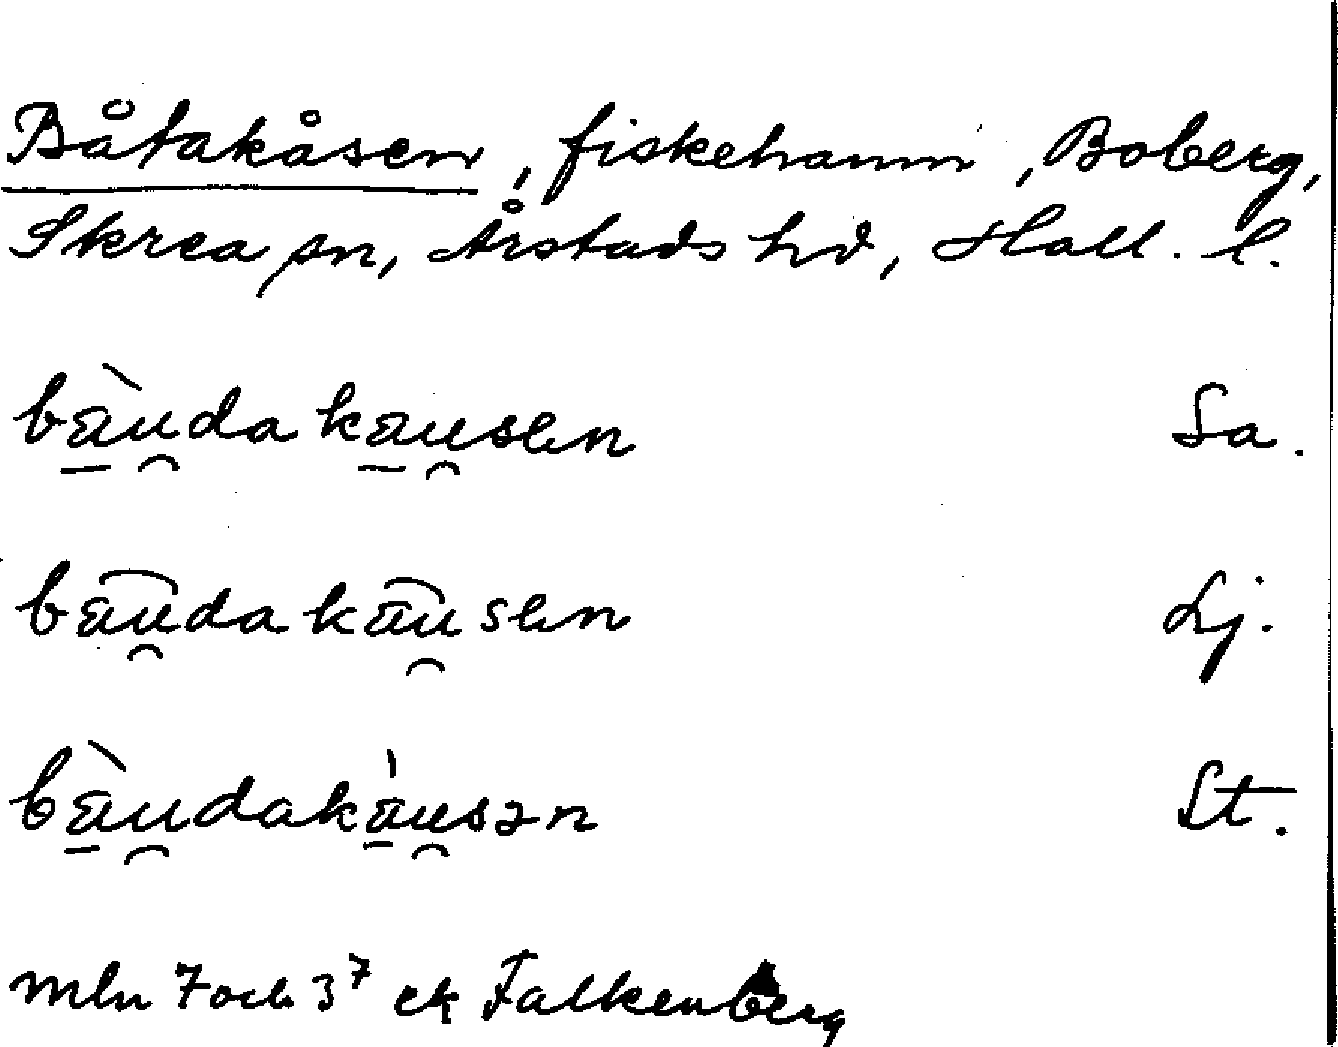 Båtakåsen, fiskehamn, Boberg,
Skrea sn, Årstads hd, Hall. l.
bà̱u̯da ka̱u̯sen Sa.
bau̯da kau̯sen Lj.
bà̱u̯daká̱u̯sən St.
mln 7 och 3⁷ ek Falkenberg